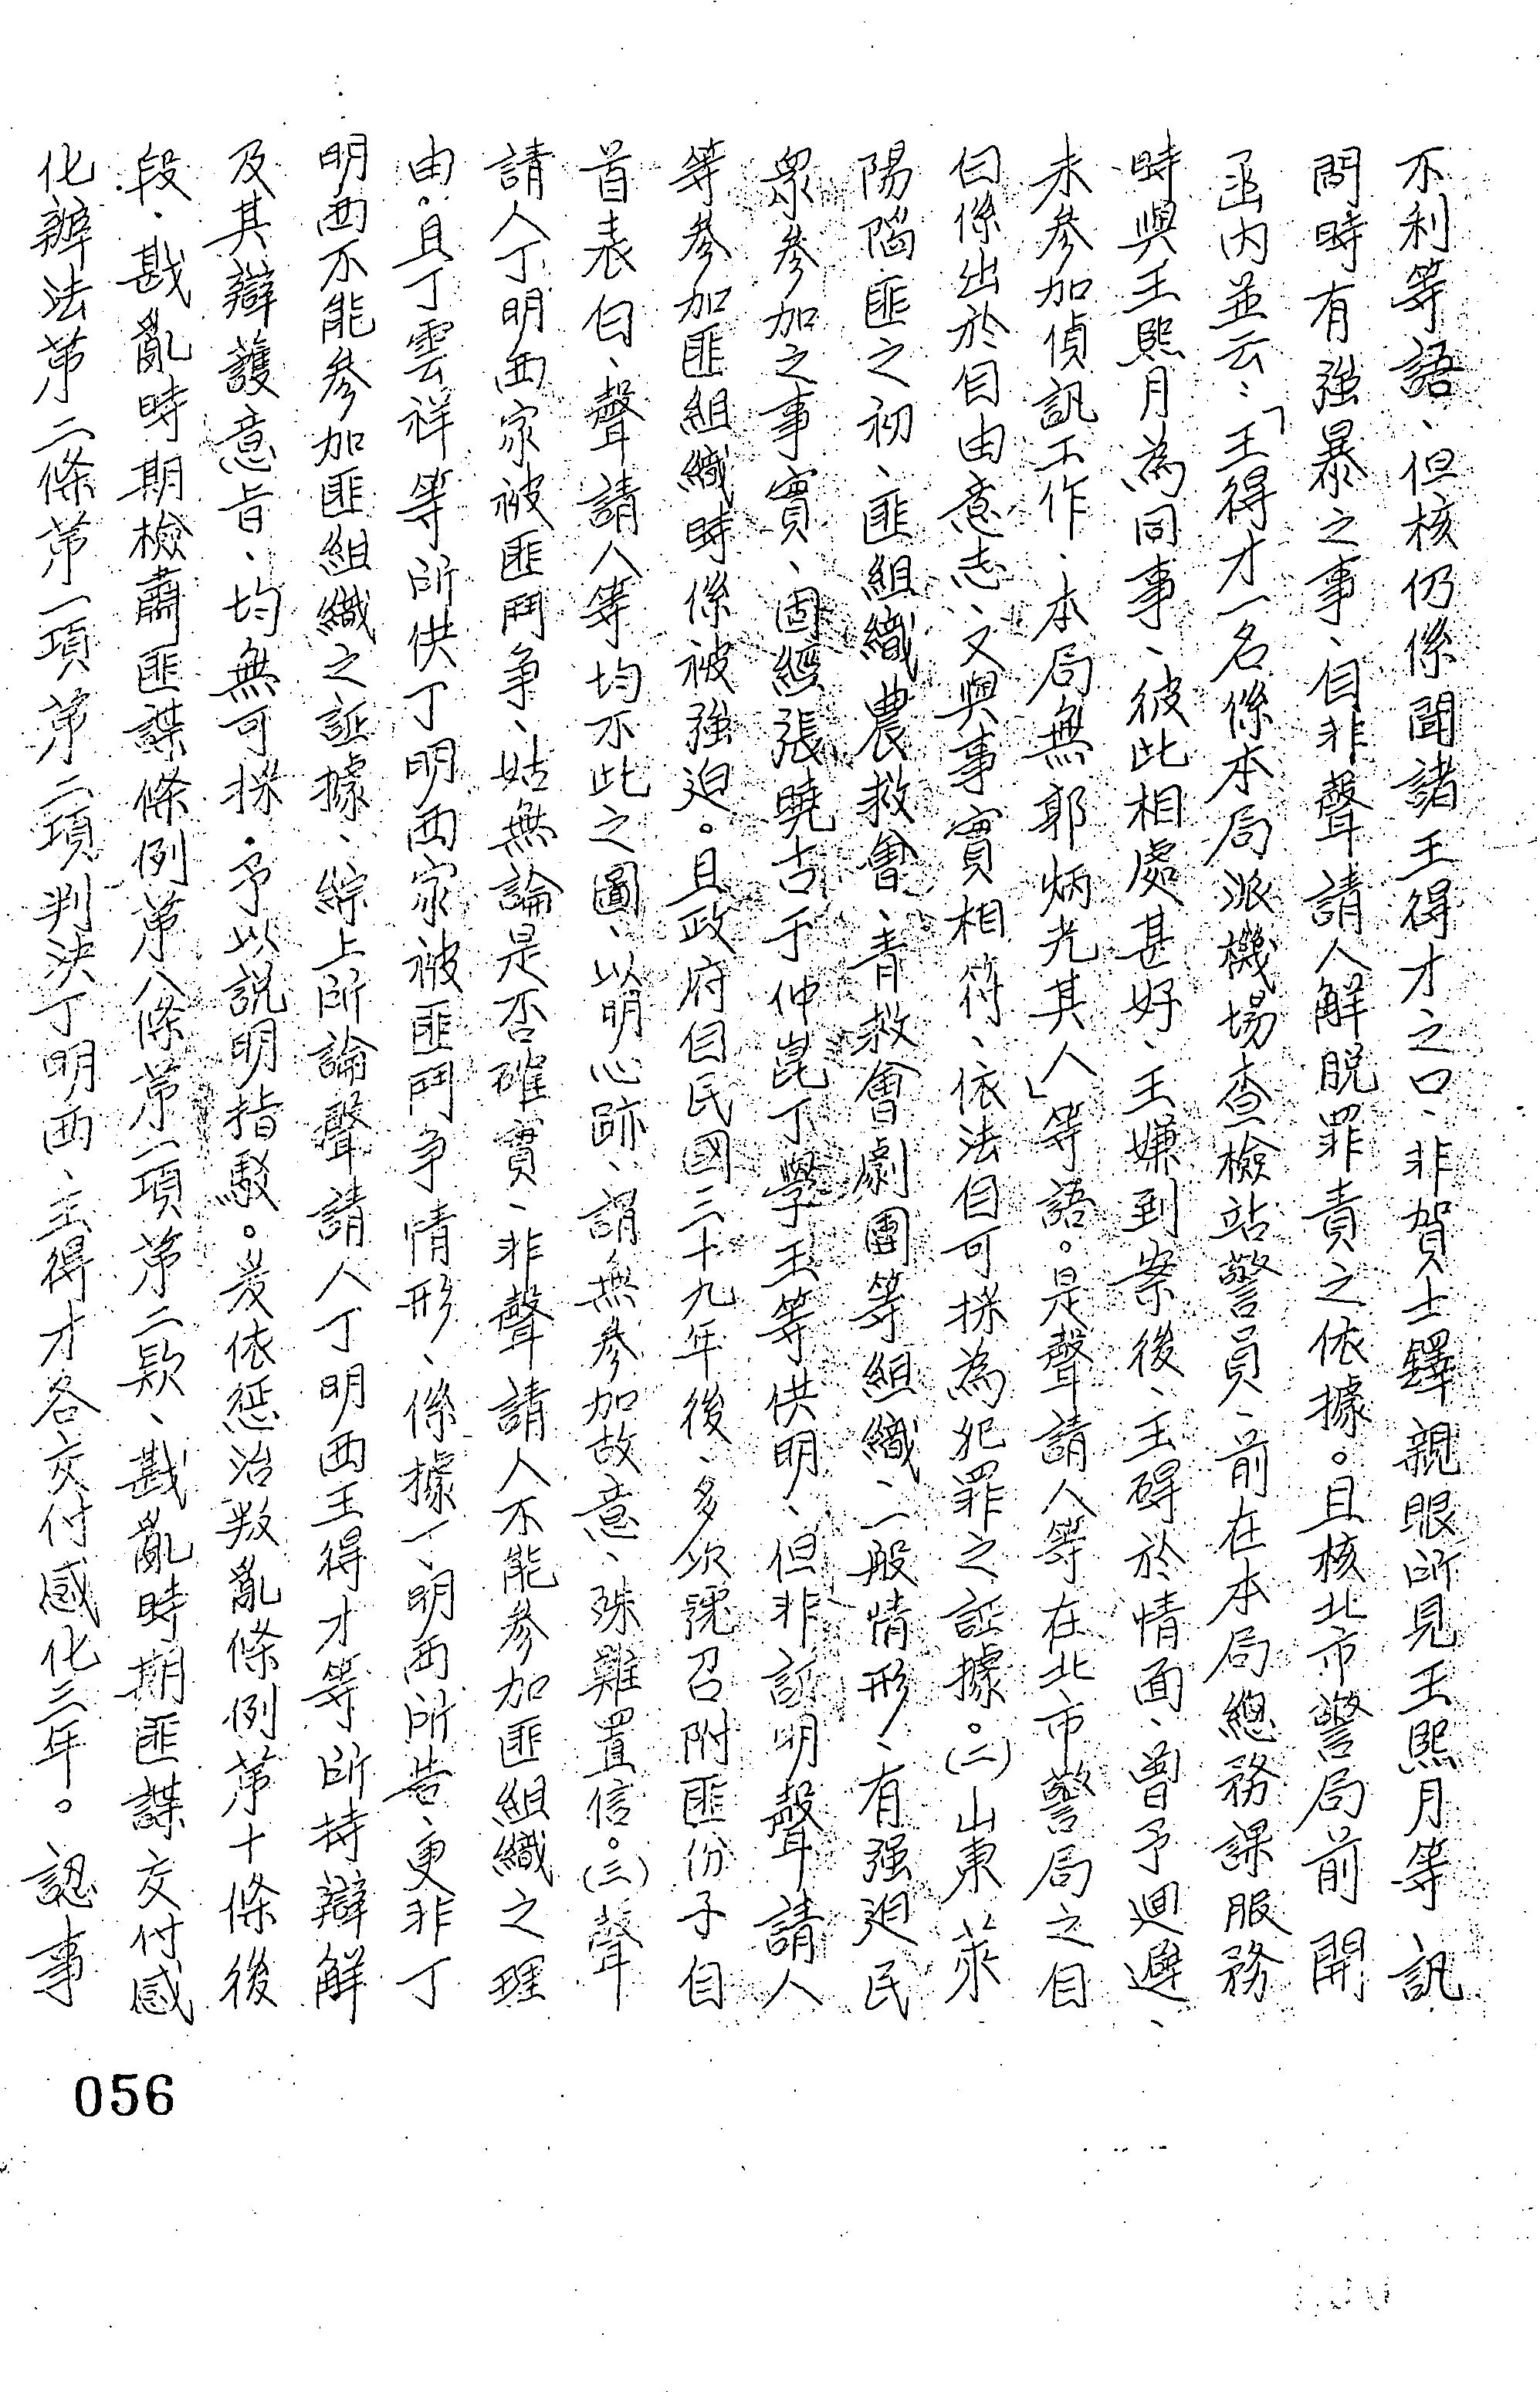 不利等語、但核仍係聞諸王得才之口、非賀士鐸親眼所見王熙月等訊
問時有強暴之事、自非聲請人解脫罪責之依據。且核北市警局前開
函內並云：「王得才一名係本局派機場查檢站警員、前在本局總務課服務
時與王熙月為同事、彼此相處甚好、王嫌到案後、王碍於情面、曾予迴避、
未參加偵訊工作、本局無郭炳光其人」等語。是聲請人等在北市警局之自
白係出於自由意志、又與事實相符、依法自可採為犯罪之証據。(二)山東萊
陽陷匪之初、匪組織農救會、青救會劇團等組織、一般情形、有強迫民
眾參加之事實、固經張曉古于仲崑丁學玉等供明、但非証明聲請人
等參加匪組織時係被強迫。且政府自民國三十九年後、多次號召附匪份子自
首表白、聲請人等均不此之圖、以明心跡、謂無參加故意、殊難置信。(三)聲
請人丁明西家被匪鬥爭、姑無論是否確實、非聲請人不能參加匪組織之理
由。且丁雲祥等所供丁明西家被匪鬥爭情形、係據丁明西所告、更非丁
明西不能參加匪組織之証據、綜上所論聲請人丁明西王得才等所持辯解
及其辯護意旨、均無可採．予以說明指駁。爰依懲治叛亂條例第十條後
段．戡亂時期檢肅匪諜條例第八條第一項第二款、戡亂時期匪諜交付感
化辦法第二條第一項第二項判決丁明西、王得才各交付感化三年。認事
056